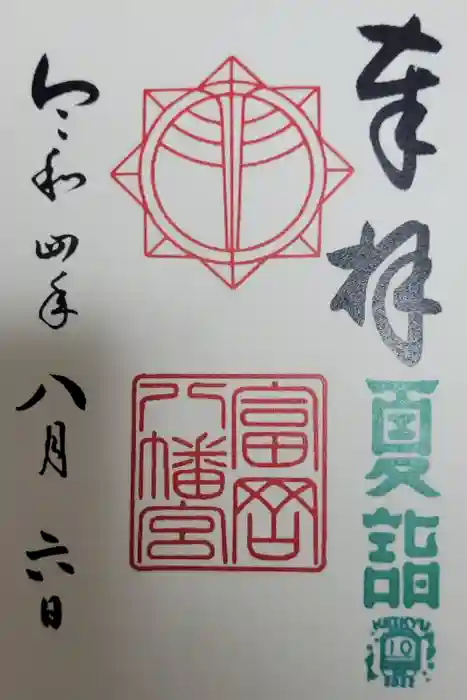 奉拝
夏詣
KEIKYU
10
2022
富岡
八幡宮
令和四年八月六日